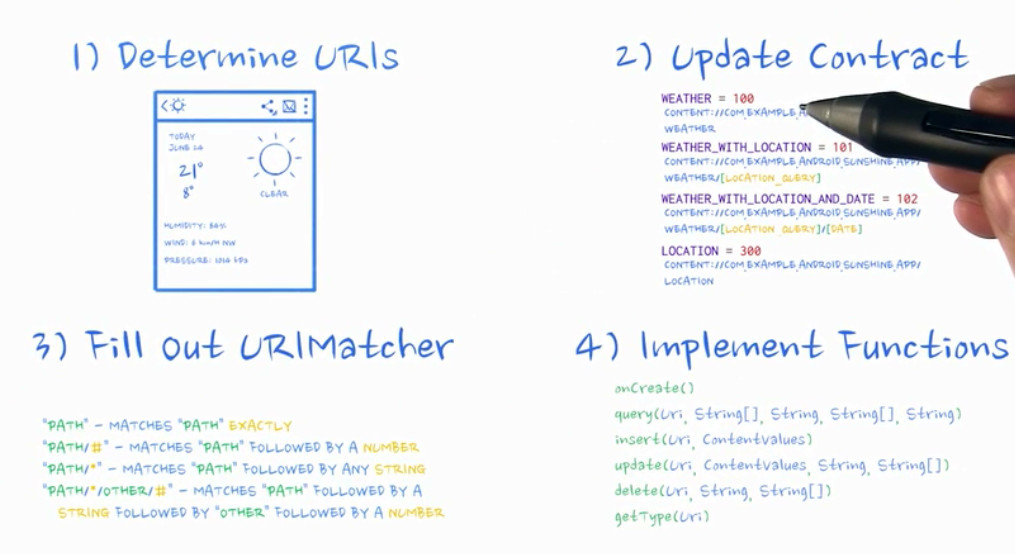 1) Determine URIs
TODAY
JUNE 24
21°
8°
CLEAR
HUMIDITY:
WIND: 6 km/H NW
PRESSURE: 1014 kPa
2) Update Contract
WEATHER = 100
CONTENT://COM.EXAMPLE.
WEATHER
WEATHER_WITH_LOCATION = 101
CONTENT://COM.EXAMPLE.ANDROID.SUNSHINE.APP/
WEATHER/[LOCATION_QUERY]
WEATHER_WITH_LOCATION_AND_DATE = 102
CONTENT://COM.EXAMPLE.ANDROID.SUNSHINE.APP/
WEATHER/[LOCATION_QUERY]/[DATE]
LOCATION = 300
CONTENT://COM.EXAMPLE.ANDROID.SUNSHINE.APP/
LOCATION
3) Fill out URIMatcher
"PATH" – MATCHES "PATH" EXACTLY
"PATH/#" – MATCHES "PATH" FOLLOWED BY A NUMBER
"PATH/*" – MATCHES "PATH" FOLLOWED BY ANY STRING
"PATH/*/OTHER/#" – MATCHES "PATH" FOLLOWED BY A
STRING FOLLOWED BY "OTHER" FOLLOWED BY A NUMBER
4) Implement Functions
onCreate()
query(Uri, String[], String, String[], String)
insert(Uri, ContentValues)
update(Uri, ContentValues, String, String[])
delete(Uri, String, String[])
getType(Uri)